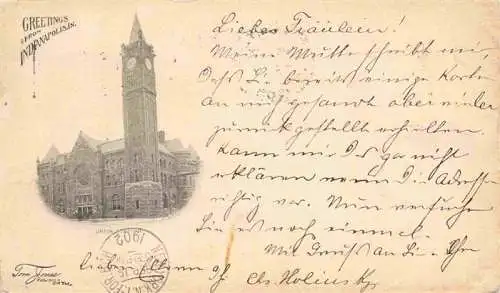 GREETINGS
FROM
INDIANAPOLIS, IN.
Liebes Fräulein!
Meine Mutter schreibt mir,
Dass Sie bereits einige Karten
an mich gesandt aber wieder
zurück gestellt erhielten.
Kann mir Das gar nicht
erklären wenn Die Adresse
richtig war. Nun versuchen
Sie es noch einmal.
Mit Gruss an Sie Ihr
1902